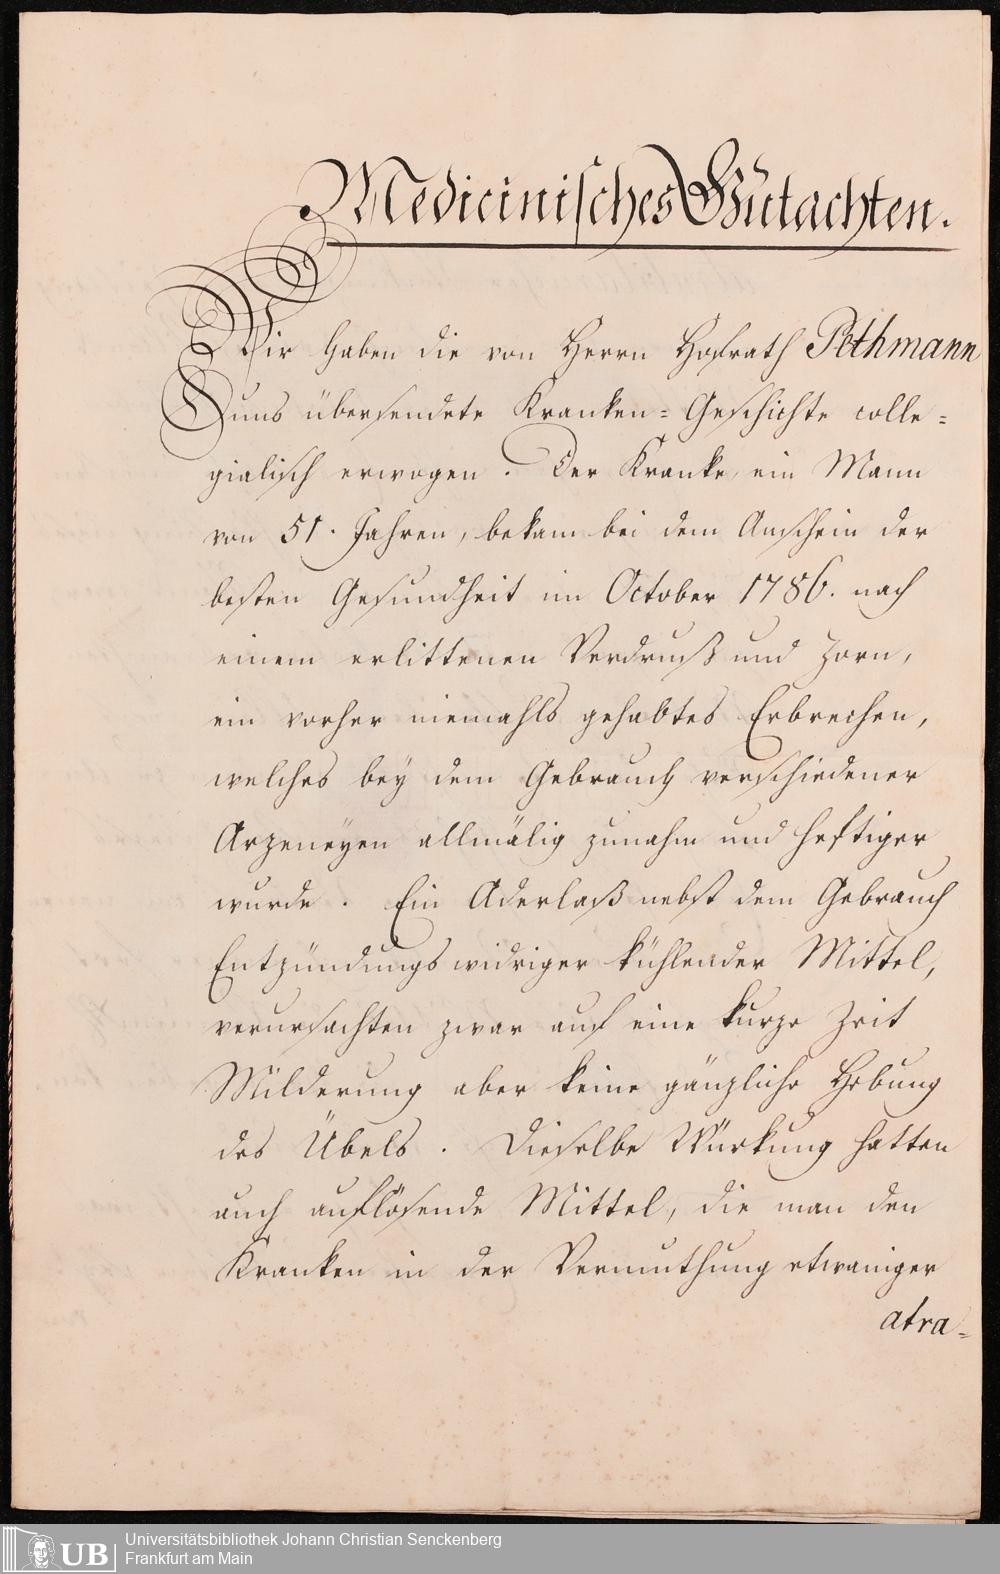 Medicinisches Gutachten.
Wir haben die von Herrn Hofrath Pethmann
uns übersendete Kranken= Geschichte colle=
gialisch erwogen. Der Kranke, ein Mann
von 51. Jahren, bekam bei dem Anschein der
besten Gesundheit im October 1786. nach
einem erlittenen Verdruß und Zorn,
ein vorher niemahls gehabtes Erbrechen,
welches bey dem Gebrauch verschiedener
Arzeneyen allmälig zunahm und heftiger
wurde. Ein Aderlaß nebst dem Gebrauch
Entzündungs widriger kühlender Mittel,
verursachten zwar auf eine kurze Zeit
Milderung aber keine gänzliche Hebung
des Übels. Dieselbe Würkung hatten
auch auflösende Mittel, die man den
Kranken in der Vermuthung etwaniger
atra=
UB
Universitätsbibliothek Johann Christian Senckenberg
Frankfurt am Main